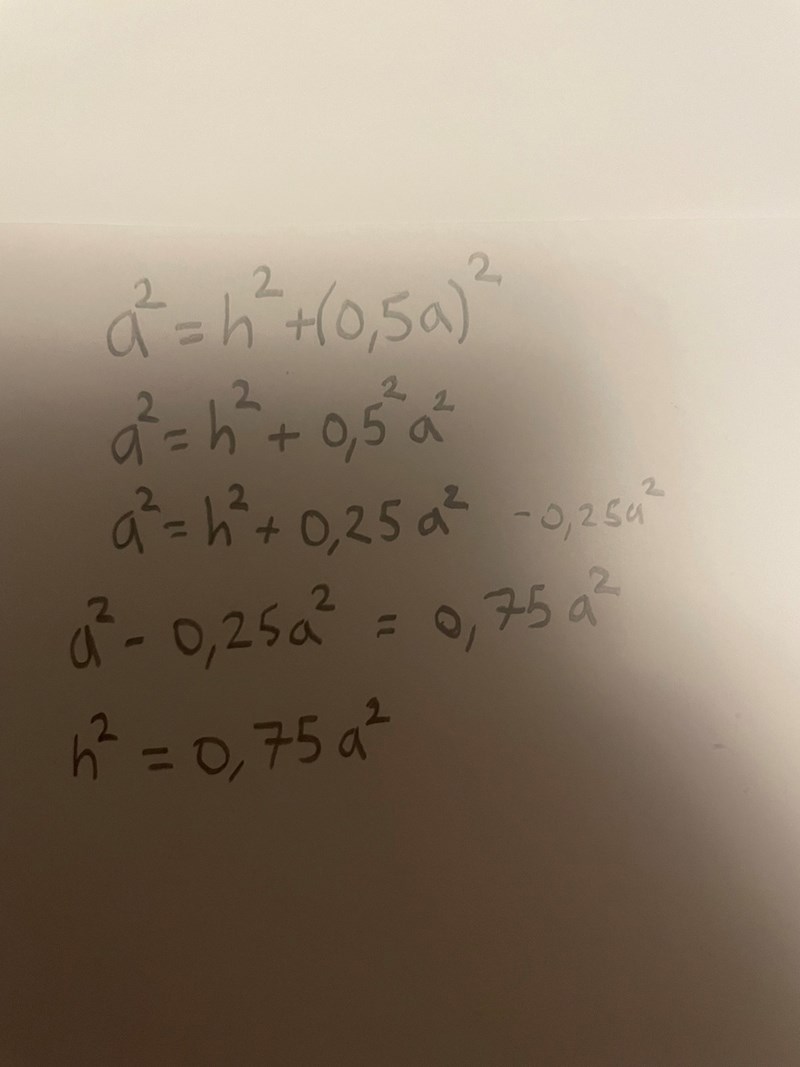 a² = h² + (0,5a)²
a² = h² + 0,5² a²
a² = h² + 0,25 a² - 0,25a²
a² - 0,25a² = 0,75 a²
h² = 0,75 a²